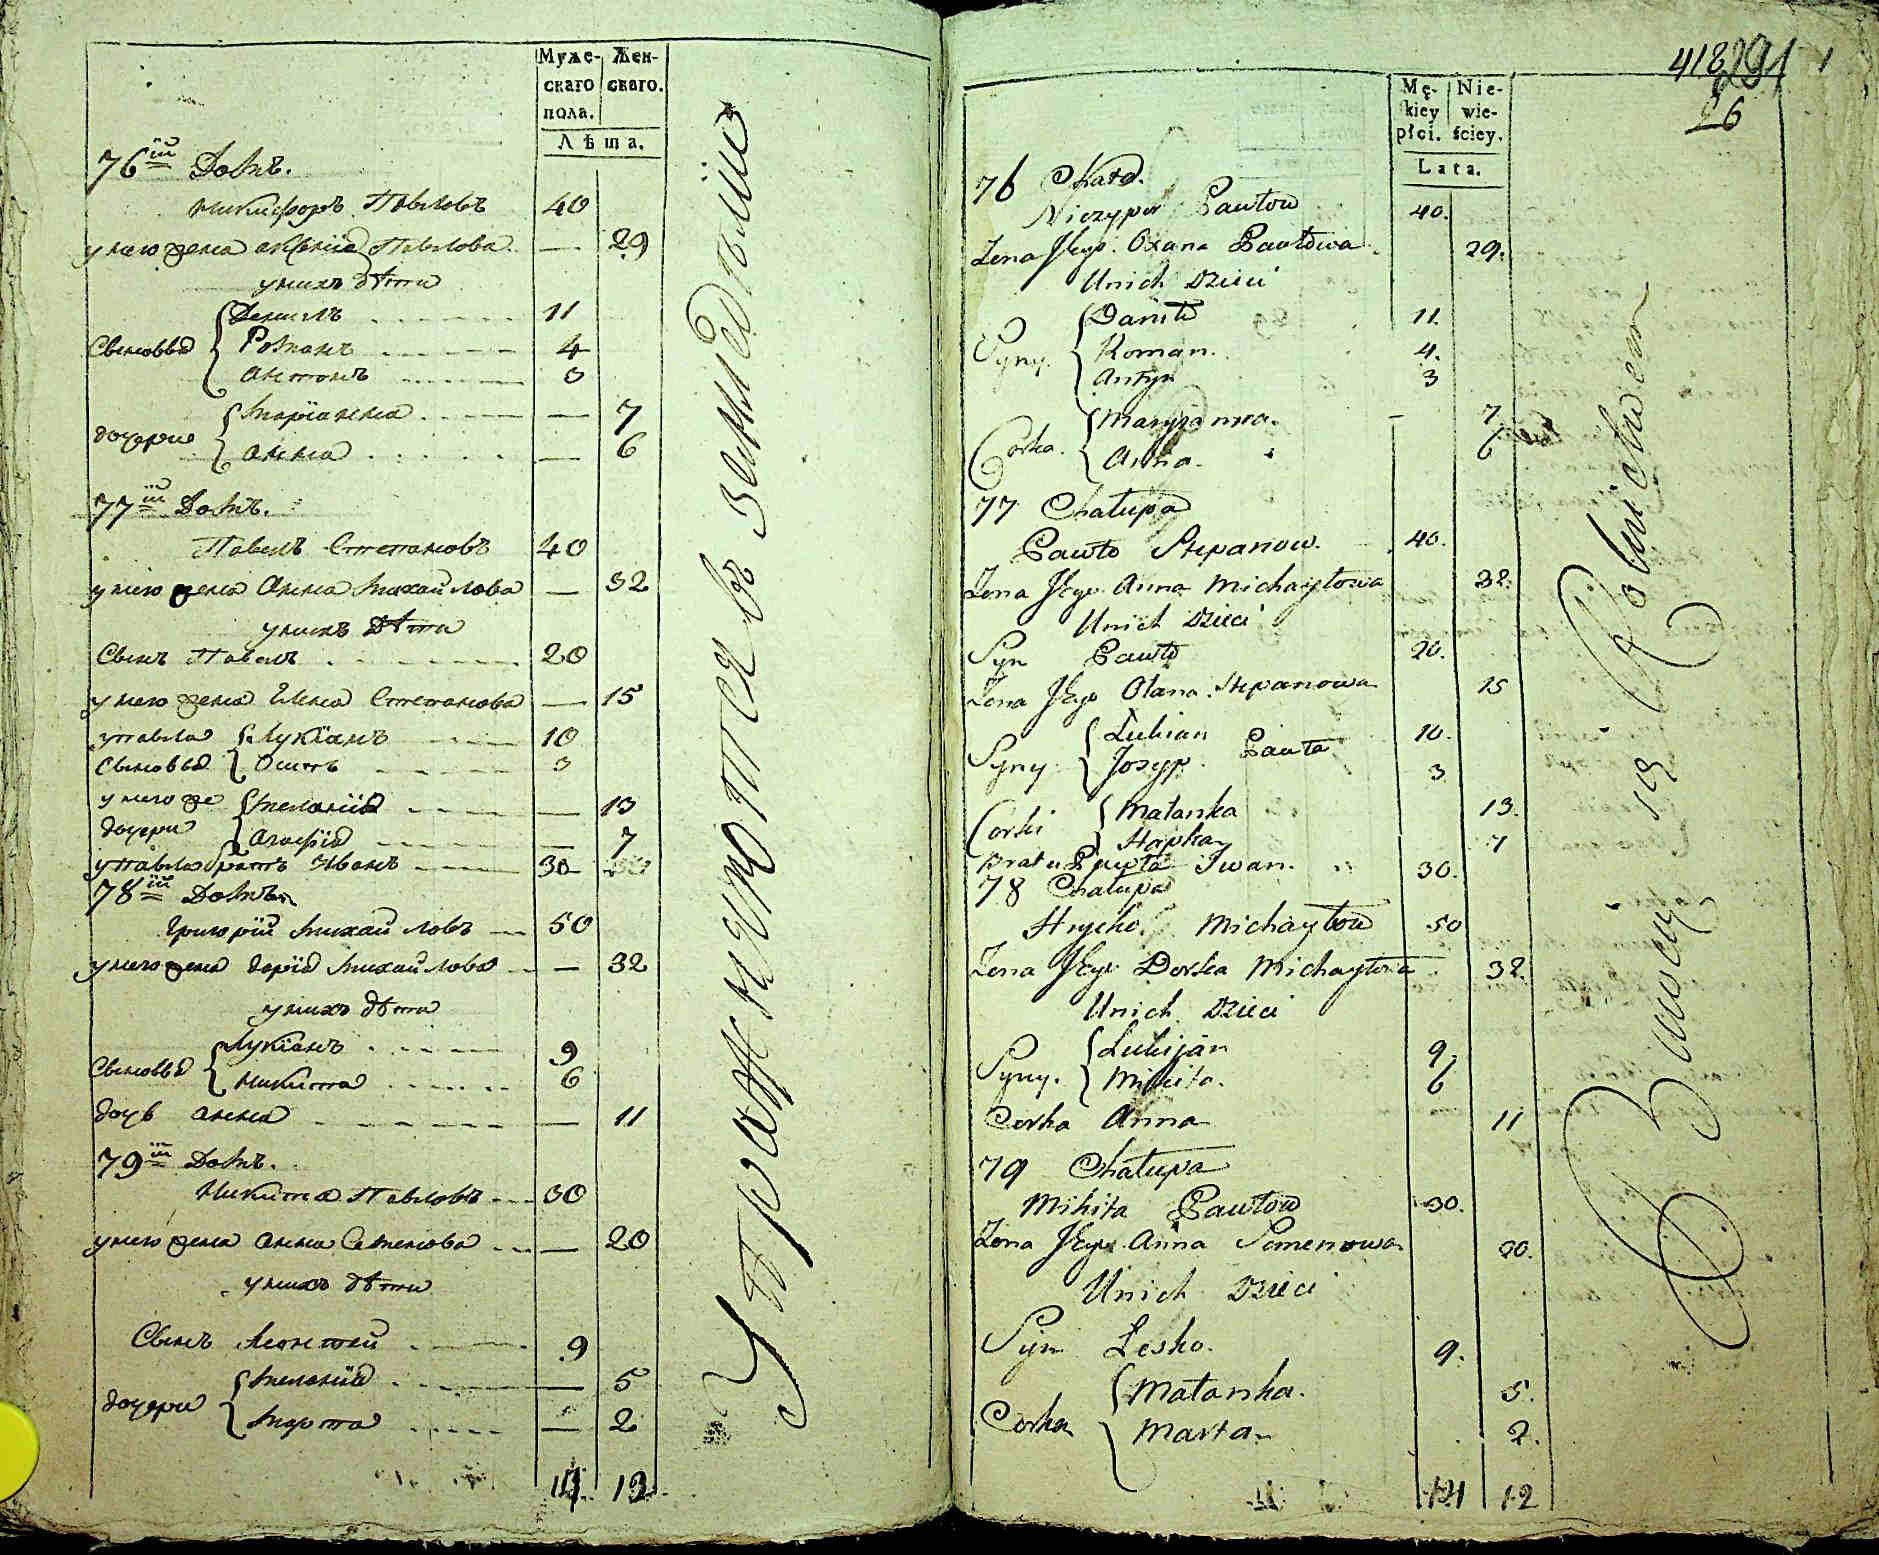 Муже- Жен-
скаго скаго.
пола.
Лѣта.
76ій Домъ.
Никифоръ Павловъ 40
у него жена Аксенія Павлова — 29
у нихъ дѣти
Данилъ 11
Сыновья { Романъ 4
Антонъ 3
{ Маріанна — 7
дочери
Анна — 6
77ій Домъ.
Павелъ Степановъ 40
у него жена Анна Михайлова — 32
у нихъ дѣти
Сынъ Павелъ 20
у него жена Елена Степанова — 15
у Павла { Лукіанъ 10
Сыновья { Осипъ 3
у него же { Меланія — 13
дочери { Агафія — 7
у Павла братъ Иванъ 30
78ій Домъ
Григорій Михайловъ 50
у него жена Дарія Михайлова — 32
у нихъ дѣти
Лукіанъ 9
Сыновья { Никита 6
дочь Анна — 11
79ій Домъ.
Никита Павловъ 30
у него жена Анна Семенова — 20
у нихъ дѣти
Сынъ 9
{ Меланія — 5
дочери { Марта — 2
14. 12.
Упражняются въ земледѣліи
418 291
26
Mę- Nie-
kiey wie-
płci. ściey.
Lata.
76 Chata.
Niczypor Pawłow 40.
Zona Jego Oxana Pawłowa 29.
Unich Dzieci
Daniło 11.
Syny { Roman 4.
Antyn 3
{ Maryanna — 7
Corka { Anna 6
77 Chałupa
Pawło Stepanow. 40.
Zona Jego Anna Michayłowa 32.
Unich Dzieci
Syn Pawło 20.
Zona Jego Olana Stepanowa 15
{ Lukian 10.
Syny { Josyp Pawła 3
Corki { Małanka 13.
Hapka 7
Brat u Pawła Iwan. 30.
78 Chałupa
Hrycko Michayłow 50
Zona Jego Dorka Michayłowa 32.
Unich Dzieci
{ Lukijan 9
Syny. { Mikita. 6
Corka Anna 11
79 Chałupa
Mikita Pawłow 30.
Zona Jego Anna Semenowa 20.
Unich Dzieci
Syn Lesko. 9.
{ Małanka. 5.
Corka { Marta 2.
14 12
Bawią się Rolnictwem